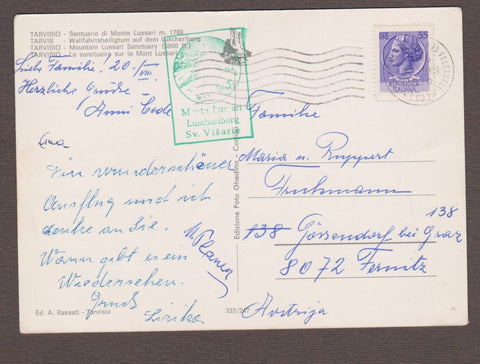 TARVISIO - Santuario di Monte Lussari m. 1789
TARVIS - Wallfahrtsheiligtum auf dem Luschariberg
TARVISIO - Mountain Lussari Sanctuary (5900 ft.)
TARVISIO - Le sanctuaire sur le Mont Lussari
Liebe Familie! 20/VIII.
Herzliche Grüße
Anni
Ein wunderschöner
Ausflug und ich
denke an die.
Wann gibt es ein
Wiedersehen.
Gruß
Monte Lussari
Luschariberg
Sv. Višarje
55
Familie
Maria u. Ruppert
Fruhmann
138
138 Gössendorf bei Graz
8072 Fernitz
Avstrija
Edizione Foto Ghedina
Ed. A. Rassati - Tarvisio
333/287